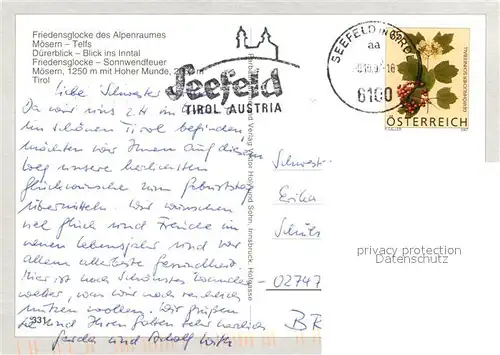 Friedensglocke des Alpenraumes
Mösern – Telfs
Dürerblick – Blick ins Inntal
Friedensglocke – Sonnwendfeuer
Mösern, 1250 m mit Hoher Munde,
Tirol
Seefeld
TIROL AUSTRIA
SEEFELD IN TIROL
aa
6100
ÖSTERREICH
Liebe Schwester
Da wir uns z.Zt. im
schönen Tirol befinden,
möchten wir Ihnen auf diesem
Weg unsere herzlichsten
Glückwünsche zum Geburtstag
übermitteln. Wir wünschen
viel Glück und Freude im
neuen Lebensjahr und vor
allem allerbeste Gesundheit.
Hier ist noch schönstes Wander-
wetter, was wir noch reichlich
nutzen wollen. Wir grüßen
Sie und Ihren Gatten sehr herzlich
Gerda und Adolf
Schwest.
Erika
Schul
02747
BR
und Verlag Viktor Hofer und Sohn, Innsbruck, Hofgasse
privacy protection
Datenschutz